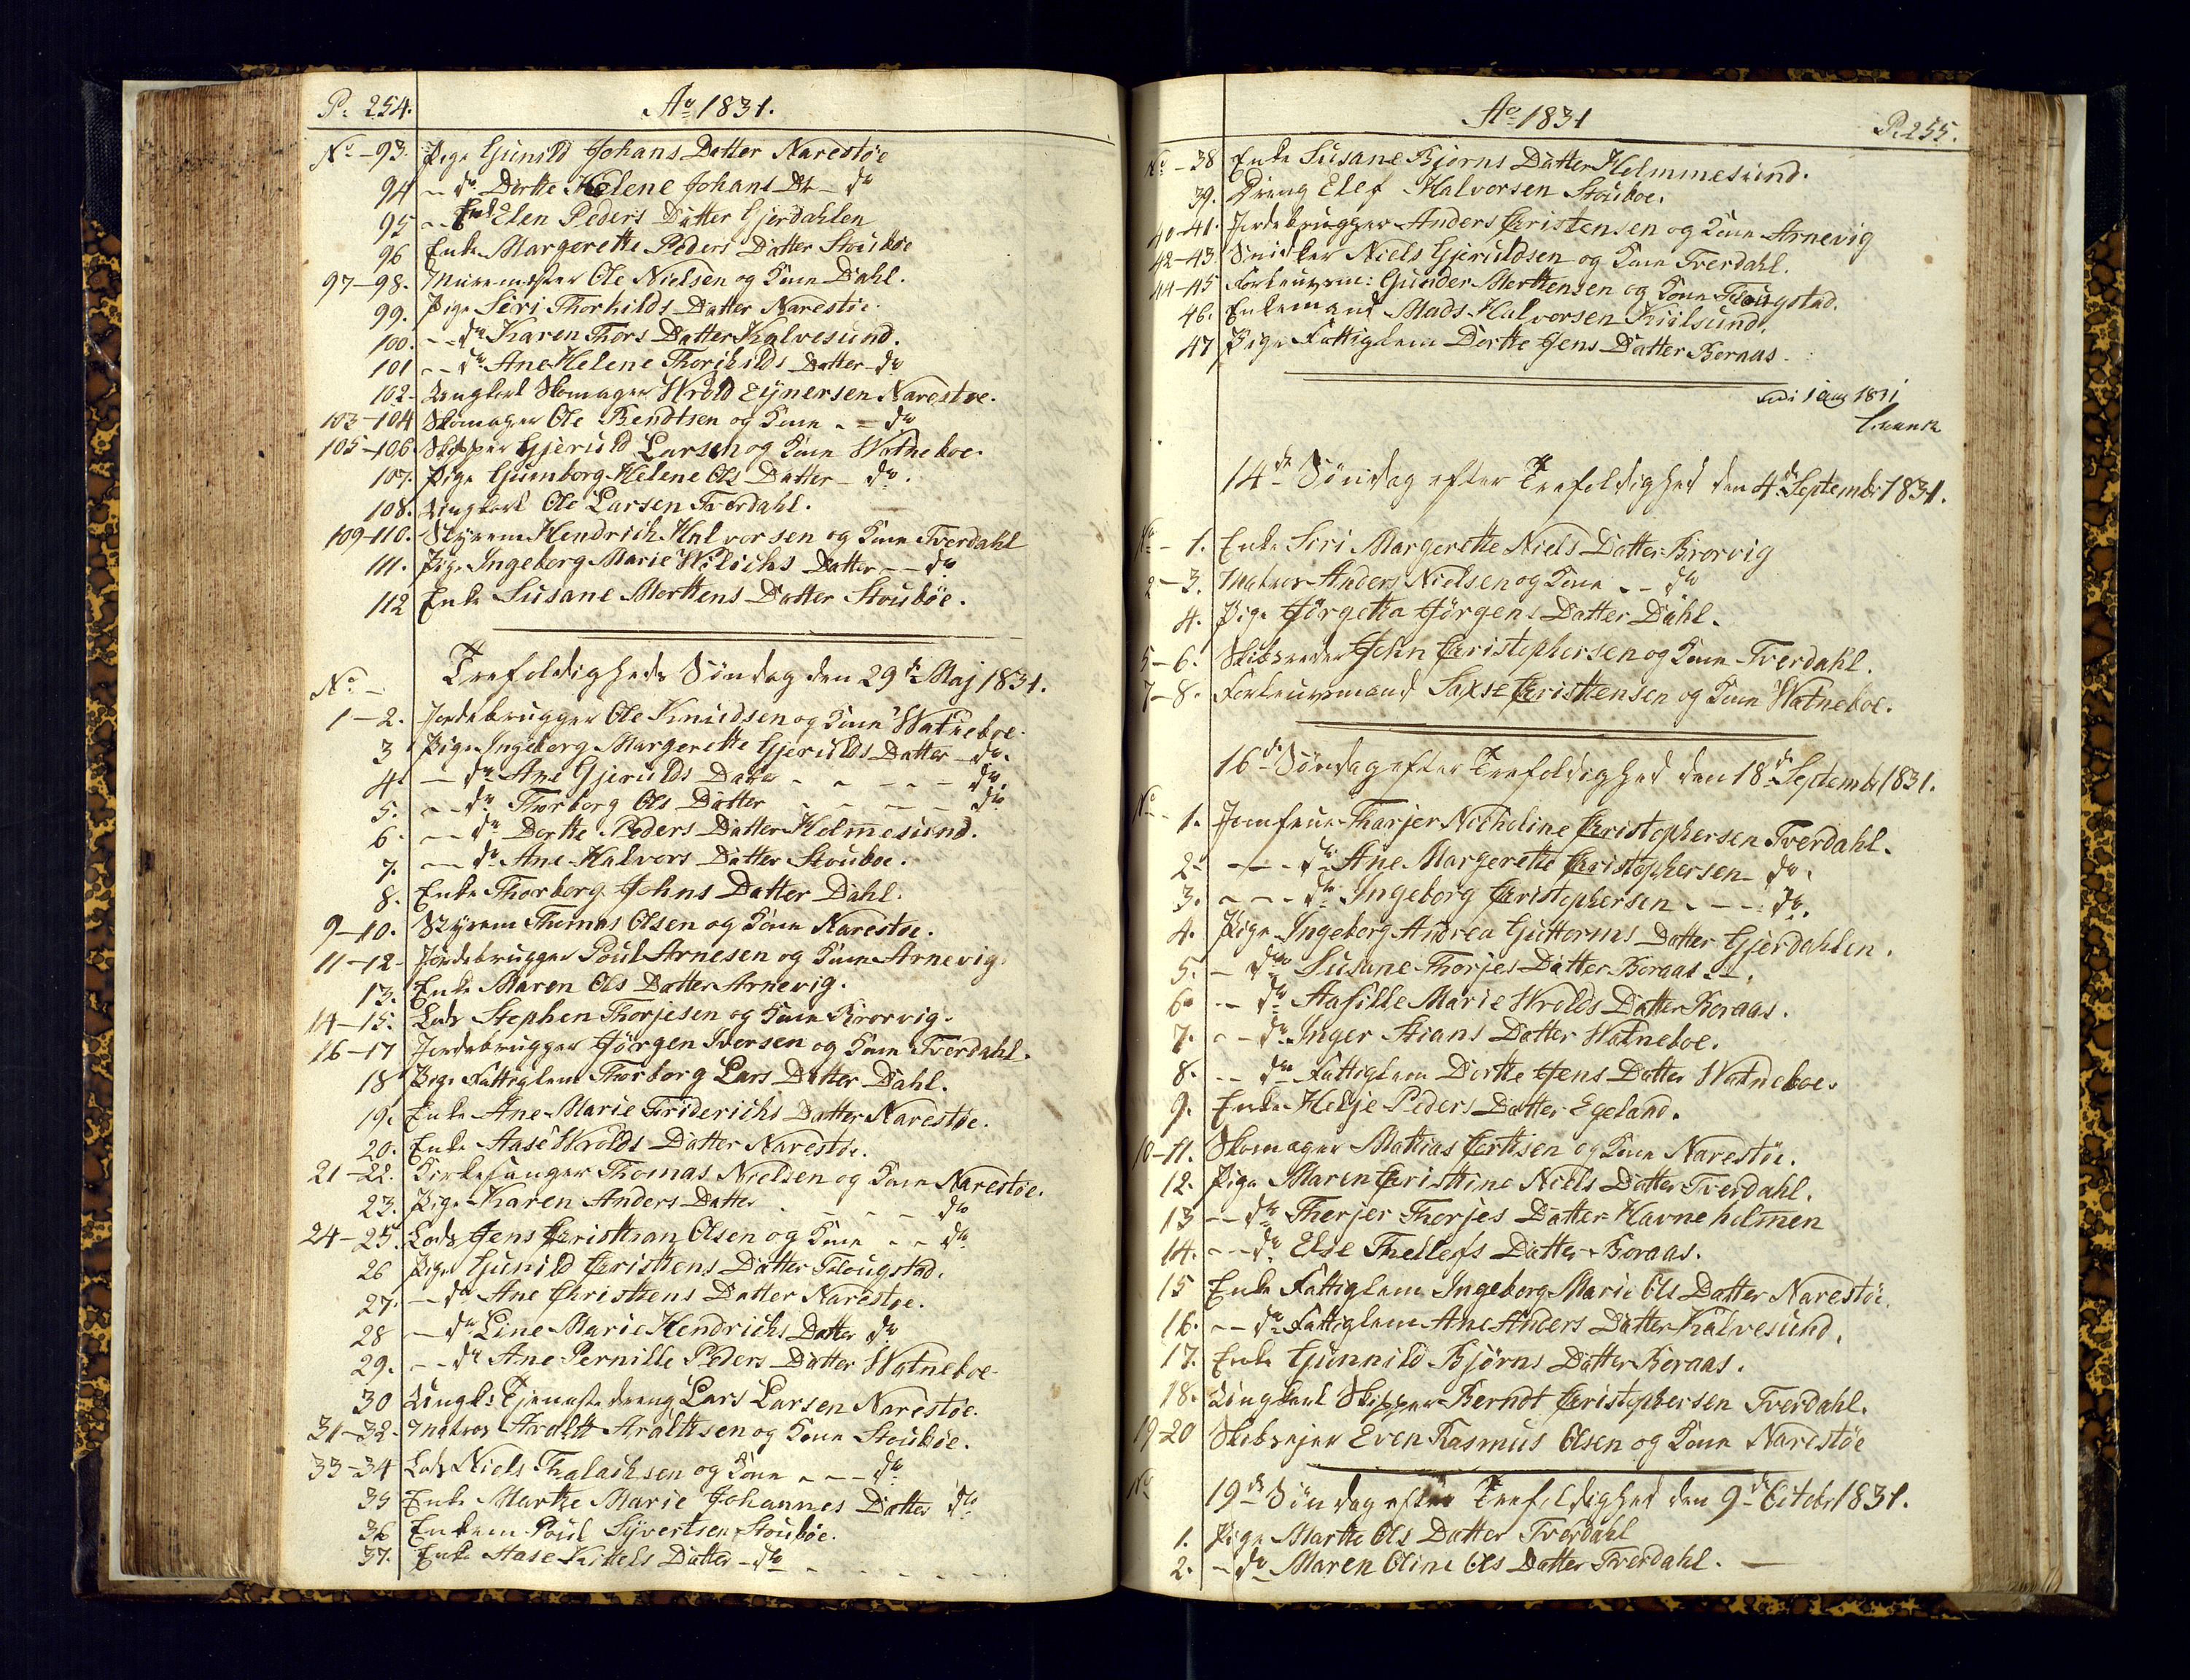 P. 254.
Ao 1831.
No - 93. Pige Gunild Johans Datter Narestöe
94 - do Dorthe Helene Johans Dt - do
95 - Enke Elen Peders Datter Gjerdahlen
96 Enke Margerethe Peders Datter Stouböe
97-98. Muremester Ole Nielsen og Kone Dahl.
99. Pige Siri Thorkilds Datter Narestöe.
100. - do Karen Thors Datter Kalvesund.
101 - do Ane Helene Thorkilds Datter - do
102. Ungkarl Skomager Wrold Ejnersen Narestøe.
103-104 Skomager Ole Bendtsen og Kone - do
105-106. Skipper Gjeruld Larsen og Kone Watneboe.
107. Pige Gunborg Helene Ols Datter - do.
108. Ungkarl Ole Larsen Tverdahl.
109-110. Styrem Hendrich Halvorsen og Kone Tverdahl
111. Pige Ingeborg Marie Wilichs Datter - do
112 Enke Susane Morttens Datter Stouböe.
Trefoldigheds Söndag den 29de Maj 1831.
No -
1-2. Jordebrugger Ole Knudsen og Kone Watneboe.
3 Pige Ingeborg Margerethe Gjerulds Datter - do.
4. - do Ane Gjerulds Datter - - - - do
5. - do Thorborg Ols Datter - - - - do
6. - do Dorthe Peders Datter Holmesund.
7. - do Ane Halvors Datter Stouboe.
8. Enke Thorborg Johns Datter Dahl.
9-10. Styrem Thomas Olsen og Kone Narestøe.
11-12. Jordebrugger Poul Arnesen og Kone Arnevig.
13. Enke Maren Ols Datter Arnevig.
14-15. Lods Stephen Thorjesen og Kone Krorvig.
16-17 Jordebrugger Jörgen Iversen og Kone Tverdahl.
18 Pige Fattiglem Thorborg Lars Datter Dahl.
19. Enke Ane Marie Friderichs Datter Narestöe.
20. Enke Aase Wrolds Datter Narestöe.
21-22. Kirkesanger Thomas Nielsen og Kone Narestöe.
23. Pige Karen Anders Datter - - - - do
24-25. Lods Jens Christian Olsen og Kone - - do
26 Pige Gunild Christens Datter Flougstad.
27. - do Ane Christens Datter Narestøe.
28 - do Line Marie Hendrichs Datter do
29. - do Ane Pernille Peders Datter Watneboe.
30 Ungk: Tjenestedreng Lars Larsen Narestöe.
31-32. Matros Aroltt Aralttsen og Kone Stouböe.
33-34 Lods Niels Thalachsen og Kone - - - do
35 Enke Marthe Marie Johannes Datter do
36 Enkem Poul Syvertsen Stouböe.
37. Enke Aase Kittels Datter - do
Ao 1831
P. 255.
No - 38 Enke Susane Bjorns Datter Holmmesund.
39. Dreng Elef Halvorsen Stouboe.
40-41. Jordebrugger Anders Christensen og Kone Arnevig
42-43. Snidker Niels Gjeruldsen og Kone Tverdahl.
44-45 Forleuvem: Gunder Morttensen og Kone Flougstad.
46. Enkemand Mads Halvorsen Kiilsund.
47 Pige Fattiglem Dorthe Jens Datter Boraas.
1 Aug 1831
14de Söndag efter Trefoldighed den 4de Septembr 1831.
No - 1. Enke Siri Margerethe Niels Datter Krorvig
2-3. Matros Anders Nielsen og Kone - - do
4. Pige Jörgetha Jörgens Datter Dahl.
5-6. Skibsreder John Christophersen og Kone Tverdahl.
7-8. Forleuvsmand Saxse Christtensen og Kone Watneboe.
16de Söndag efter Trefoldighed den 18de Septembr 1831.
No 1. Jomfrue Tharjer Nicholine Christophersen Tverdahl.
2. - - - do Ane Margerethe Christophersen - do.
3. - - - do Ingeborg Christophersen - - - do.
4. Pige Ingeborg Andrea Guttorms Datter Gjerdahlen.
5. - do Susane Thorjes Datter Boraas.
6. - do Aasille Marie Wrolds Datter Boraas.
7. - do Inger Stians Datter Watneboe.
8. - do Fattiglem Dorthe Jens Datter Watneboe.
9. Enke Helje Peders Datter Egeland.
10-11. Skomager Mathias Certhsen og Kone Narestöe.
12. Pige Maren Christtine Niels Datter Tverdahl.
13 - do Therjer Thorjes Datter Havneholmen
14. - do Else Thellefs Datter Boraas.
15 Enke Fattiglem Ingeborg Marie Ols Datter Narestöe.
16. - do Fattiglem Ane Anders Datter Kalvesund.
17. Enke Gunnild Bjørns Datter Boraas.
18. Ungkarl Skipper Berndt Christophersen Tverdahl.
19-20 Skibsejer Even Rasmus Olsen og Kone Narestöe
No 19de Söndag efter Trefoldighed den 9de Octobr 1831.
1. Pige Marthe Ols Datter Tverdahl
2. - do Maren Oline Ols Datter Tverdahl. -